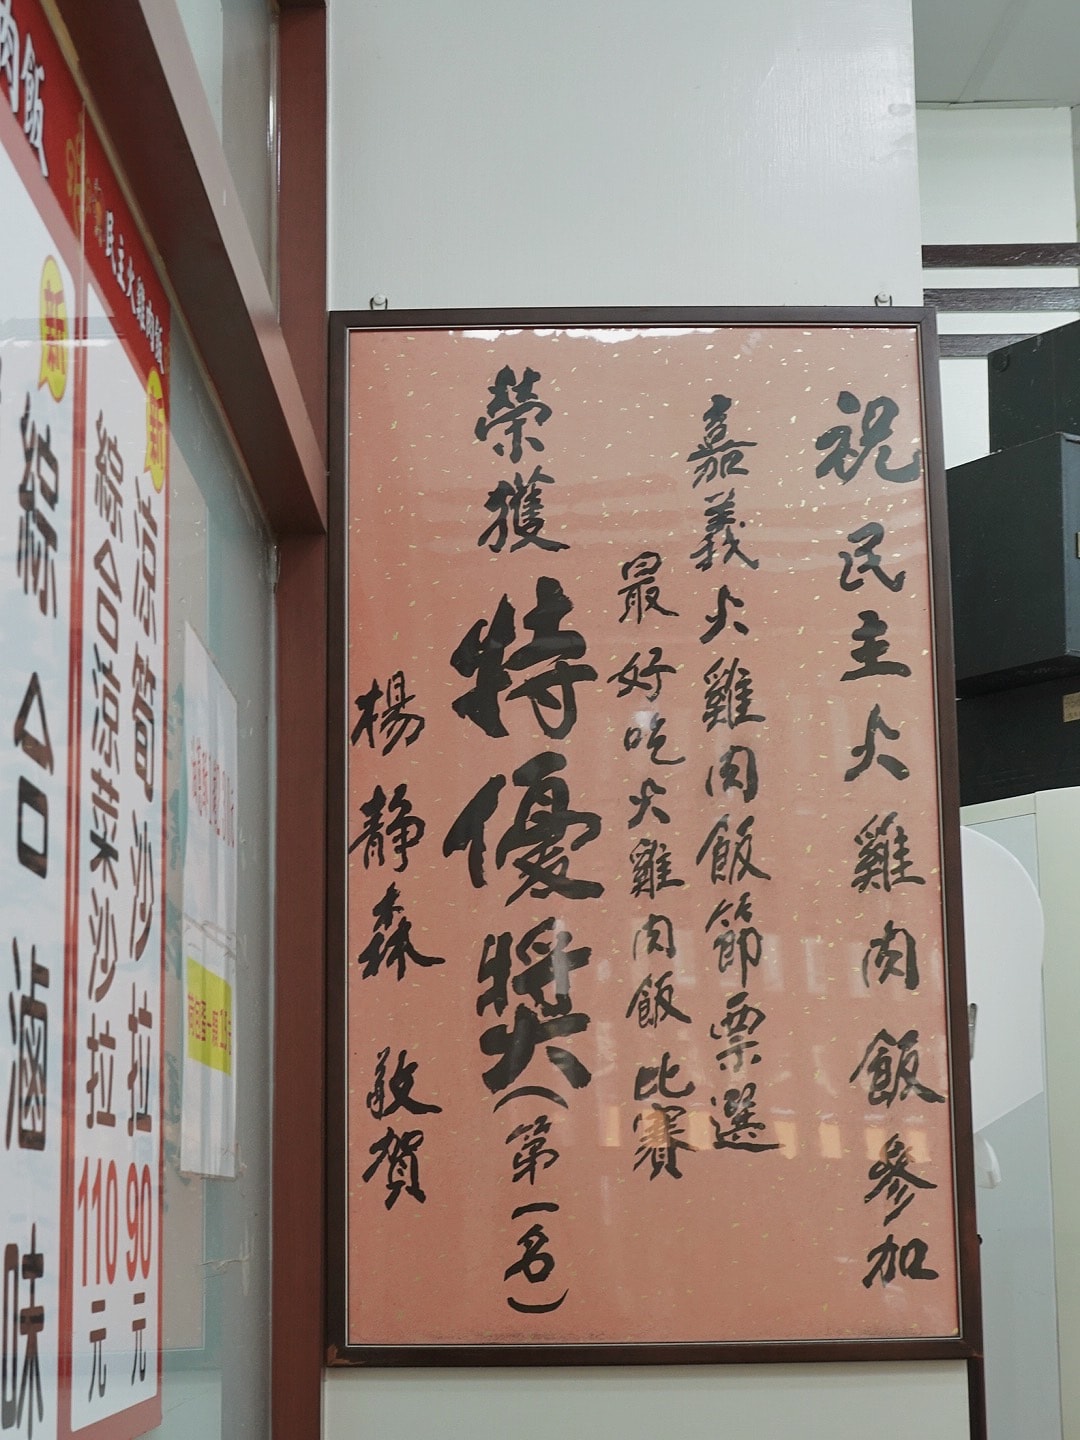 祝民主火雞肉飯參加
嘉義火雞肉飯節票選
最好吃火雞肉飯比賽
榮獲特優獎(第一名)
楊靜森 敬賀
肉飯
民主火雞肉飯
新
涼筍沙拉90元
綜合涼菜沙拉110元
新
綜合滷味